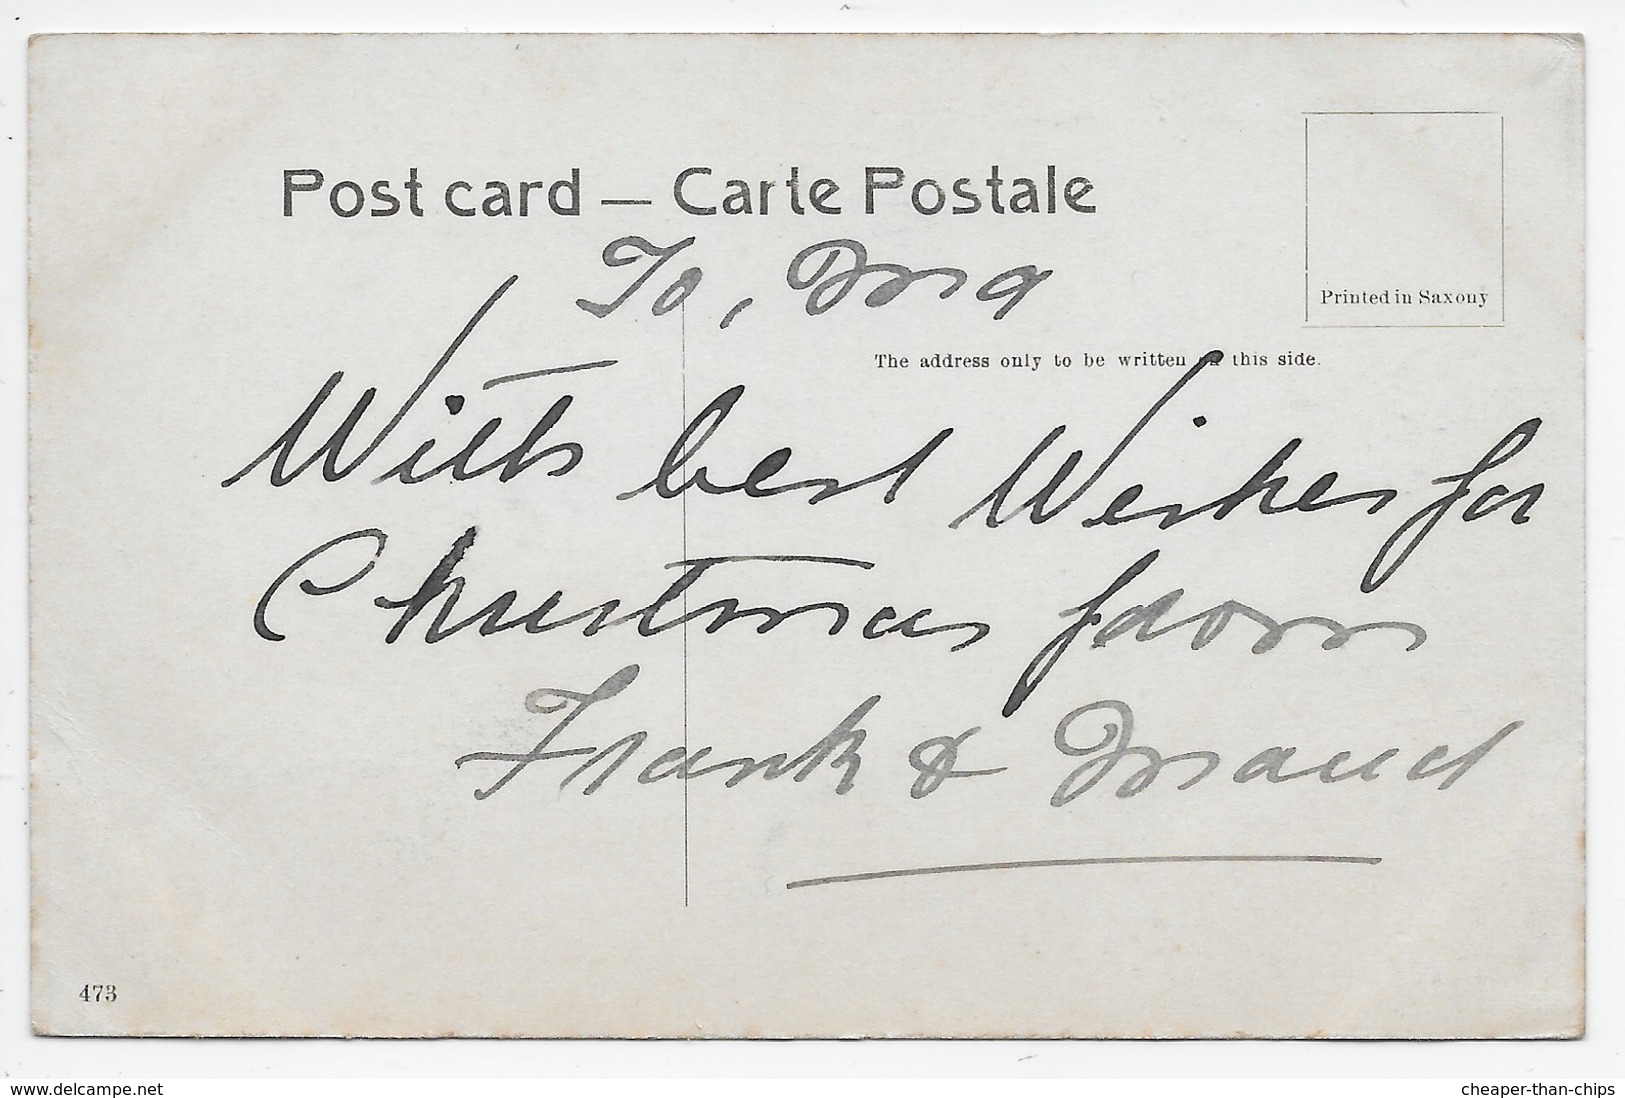 Post card — Carte Postale
Printed in Saxony
To, Ma
The address only to be written on this side.
With best Wishes for
Christmas from
Frank & Maud
473
www.delcampe.net
cheaper-than-chips